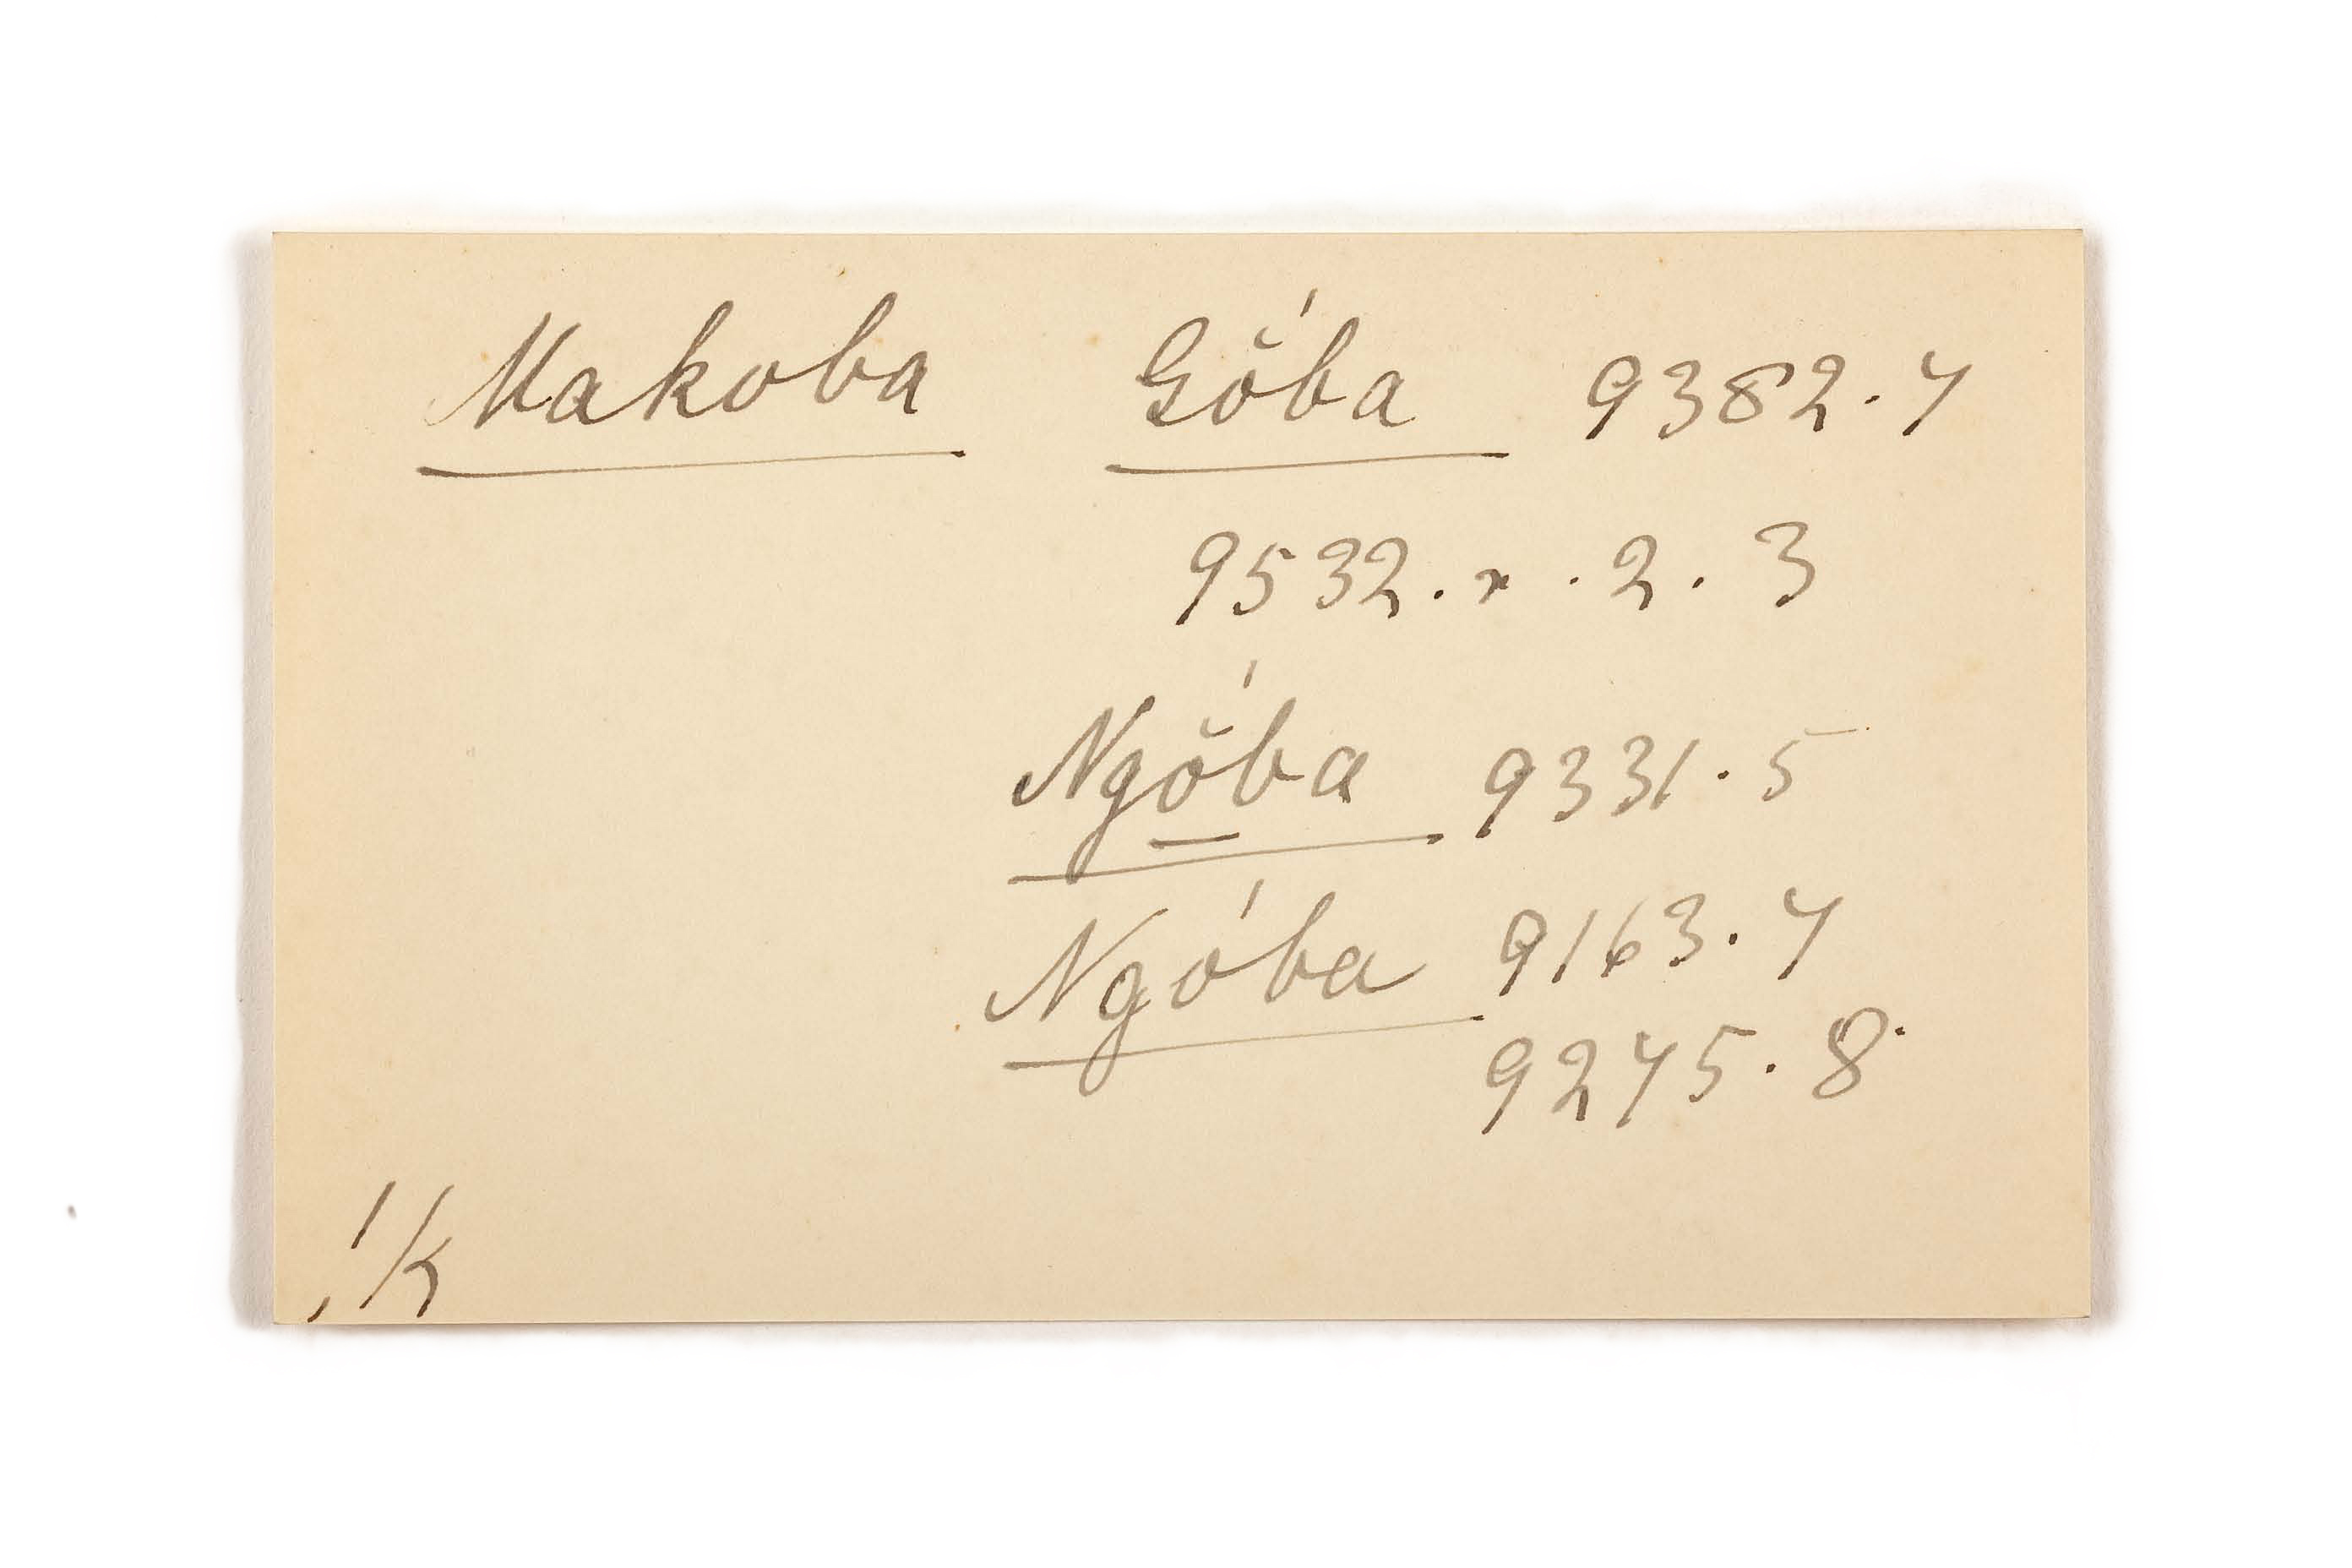 Makoba Gŏ́ba 9382.7
9532.r.2.3
Ngŏ̱́ba 9331.5
Ngóba 9163.7
9275.8